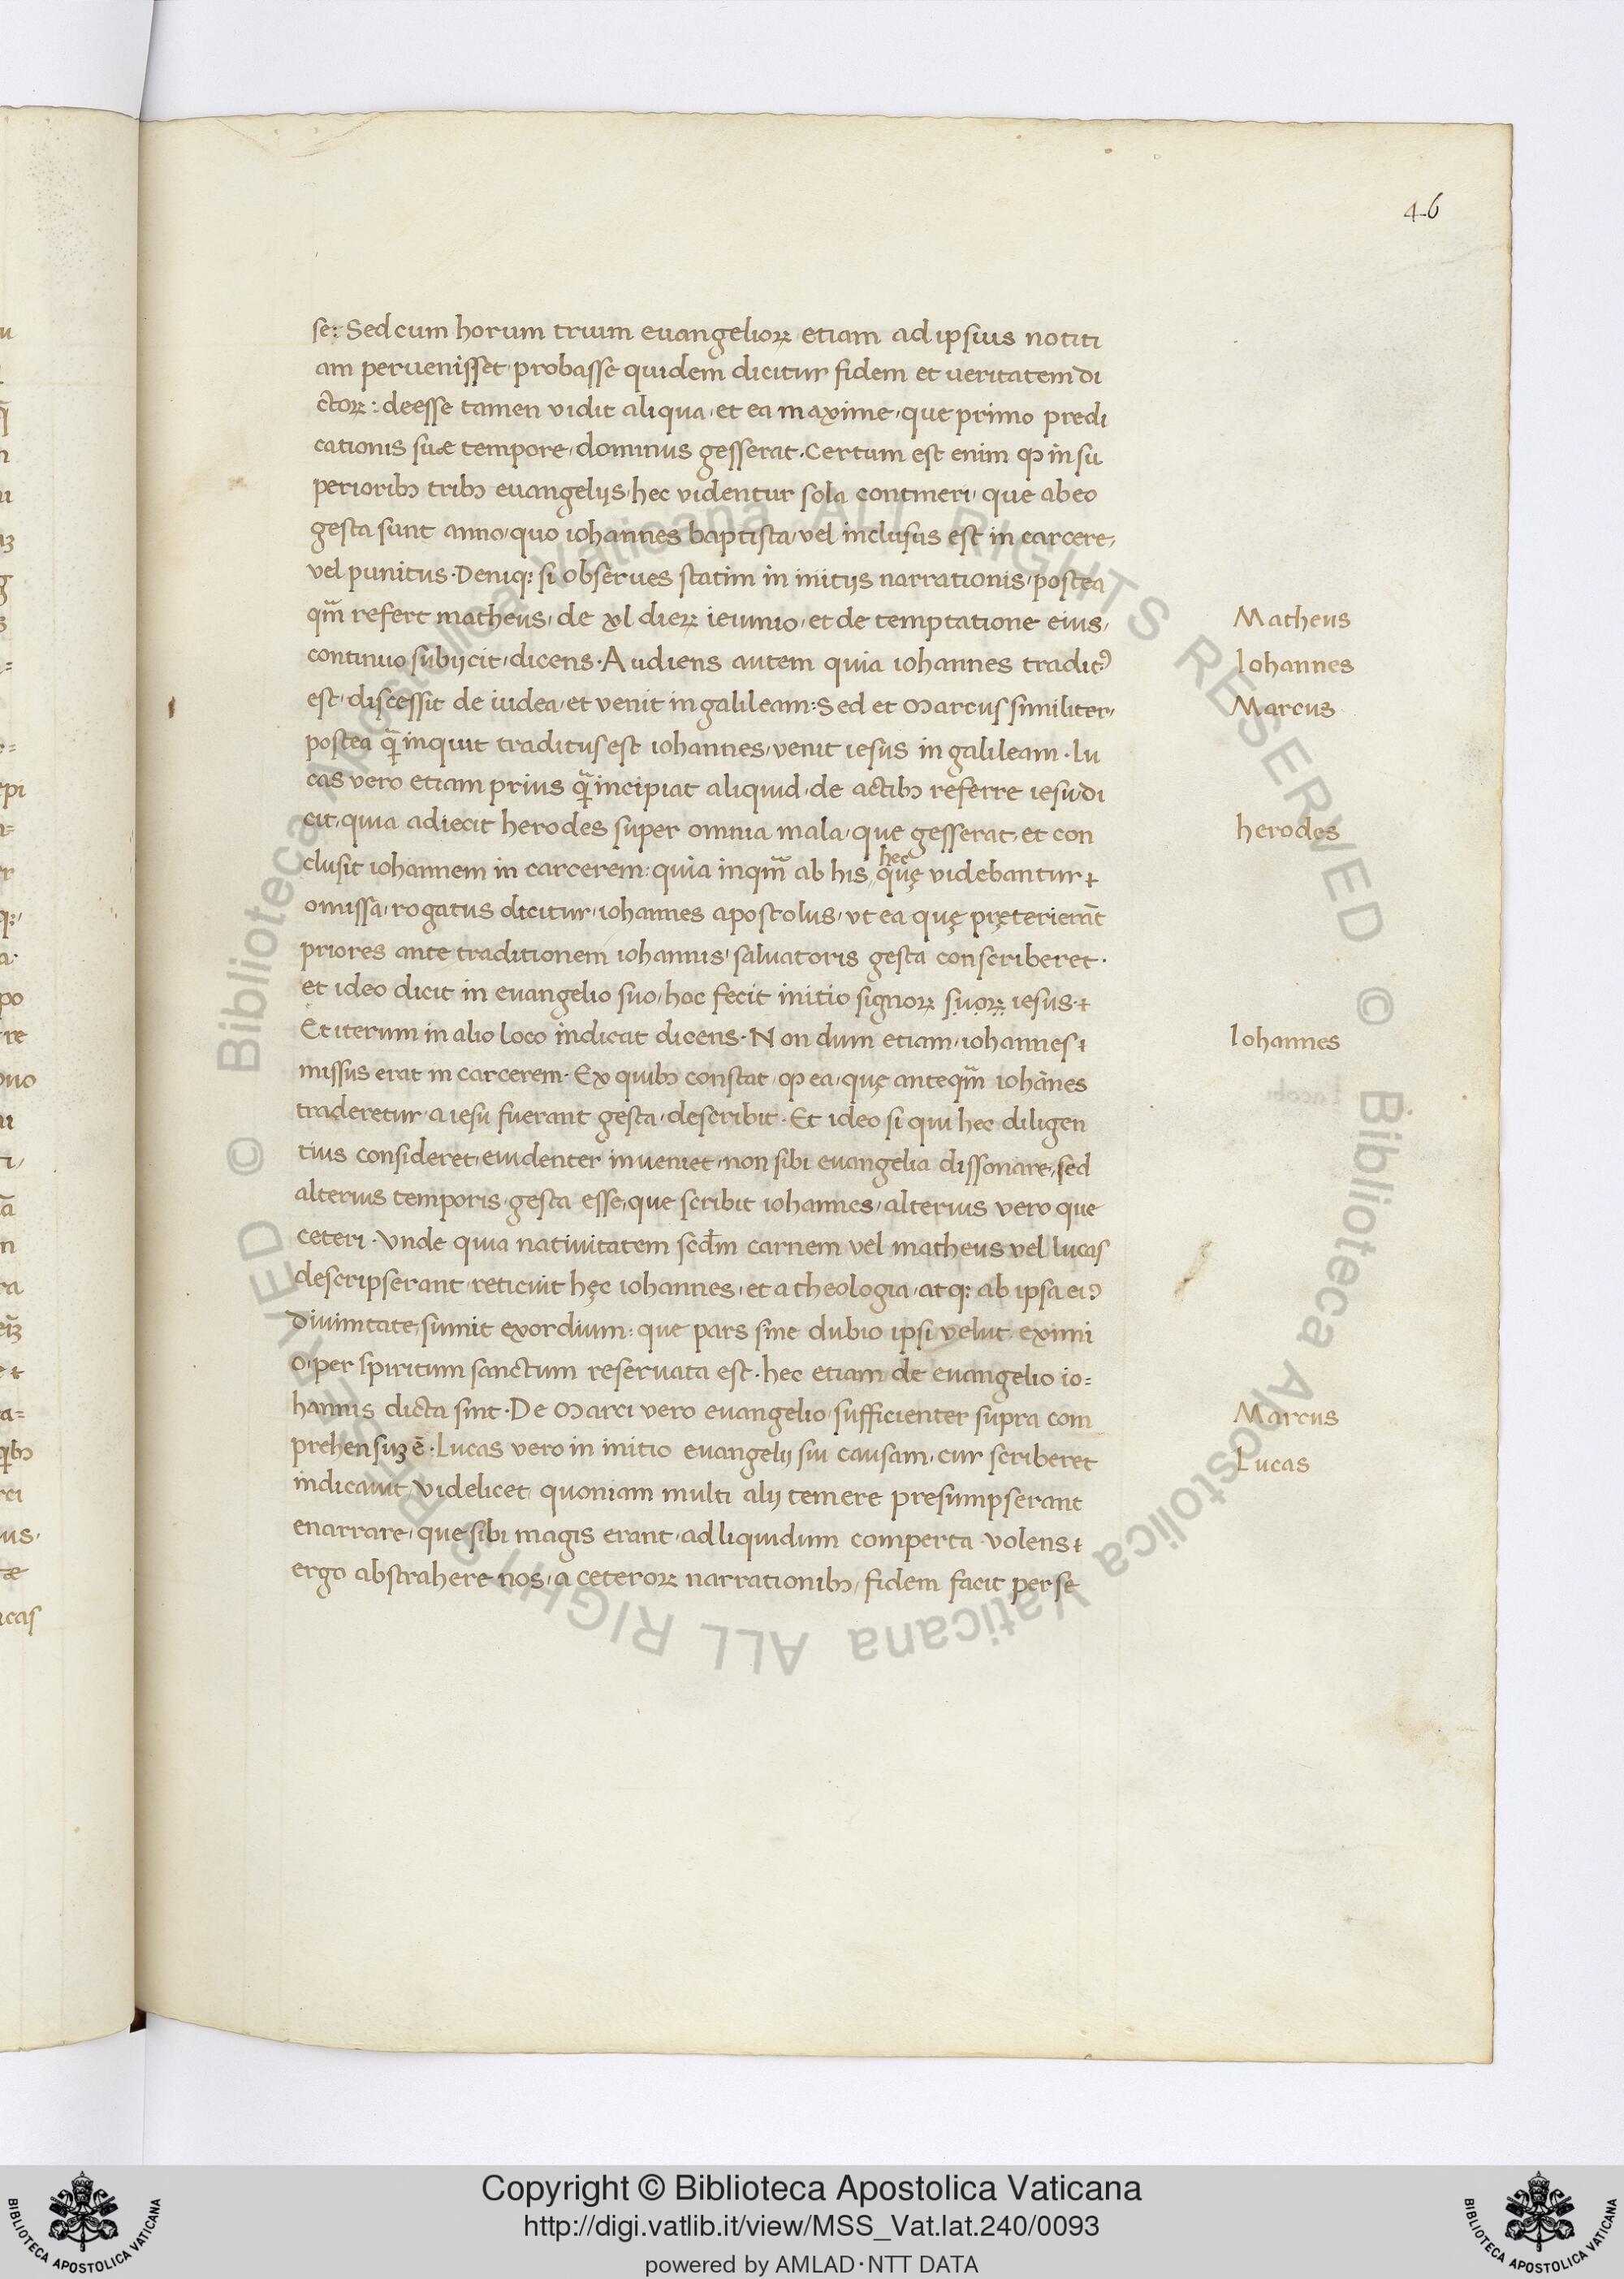 46
se: Sed cum horum trium euangelioꝝ etiam ad ipsius notiti
am peruenisset, probasse quidem dicitur fidem et ueritatem di
ctoꝝ: deesse tamen vidit aliqua, et ea maxime, que primo predi
cationis suæ tempore, dominus gesserat. Certum est enim ꝙ in su
perioribꝫ tribꝫ euangelijs, hec videntur sola contineri, que ab eo
gesta sunt anno, quo iohannes baptista, vel inclusus est in carcere,
vel punitus. Deniqꝫ si obserues statim in initijs narrationis, postea
qm̄ refert matheus, de xl dieꝝ ieiunio, et de temptatione eius,
Matheus
continuo subijcit, dicens. Audiens autem quia iohannes traditꝰ
Iohannes
est, discessit de iudea, et venit in galileam: Sed et Marcus similiter,
Marcus
postea q̄ inquit traditus est iohannes, venit iesus in galileam. Lu
cas vero etiam prius q̄ incipiat aliquid, de actibꝫ referre iesu, di
cit, quia adiecit herodes super omnia mala, que gesserat, et con
herodes
clusit iohannem in carcerem: quia inqm̄ ab his, hec quę videbantur
omissa, rogatus dicitur, iohannes apostolus, vt ea quę pręterierāt
priores ante traditionem iohannis, saluatoris gesta conscriberet.
et ideo dicit in euangelio suo, hoc fecit initio signoꝝ suoꝝ iesus.
Et iterum in alio loco indicat dicens. Non dum etiam, iohannes
Iohannes
missus erat in carcerem. Ex quibꝫ constat, ꝙ ea, quę anteqm̄ iohānes
traderetur, a iesu fuerant gesta, describit. Et ideo si qui hec diligen
tius consideret, euidenter inueniet, non sibi euangelia dissonare, sed
alterius temporis, gesta esse, que scribit iohannes, alterius vero que
ceteri. Vnde quia natiuitatem scd̄m carnem vel matheus vel lucas
descripserant, reticuit hęc iohannes, et a theologia, atqꝫ ab ipsa eiꝰ
diuinitate, sumit exordium: que pars sine dubio ipsi velut eximi
o, per spiritum sanctum reseruata est. hec etiam de euangelio io=
hannis dicta sint. De Marci vero euangelio, sufficienter supra com
Marcus
prehensuꝫ ē. Lucas vero in initio euangelij sui causam, cur scriberet
Lucas
indicauit, videlicet, quoniam multi alij temere presumpserant
enarrare, que sibi magis erant, ad liquidum comperta. volens
ergo abstrahere nos, a ceteroꝝ narrationibꝫ, fidem facit per se
© Biblioteca Apostolica Vaticana ALL RIGHTS RESERVED © Biblioteca Apostolica Vaticana ALL RIGHTS RESERVED
Copyright © Biblioteca Apostolica Vaticana
http://digi.vatlib.it/view/MSS_Vat.lat.240/0093
powered by AMLAD·NTT DATA
BIBLIOTECA APOSTOLICA VATICANA
BIBLIOTECA APOSTOLICA VATICANA